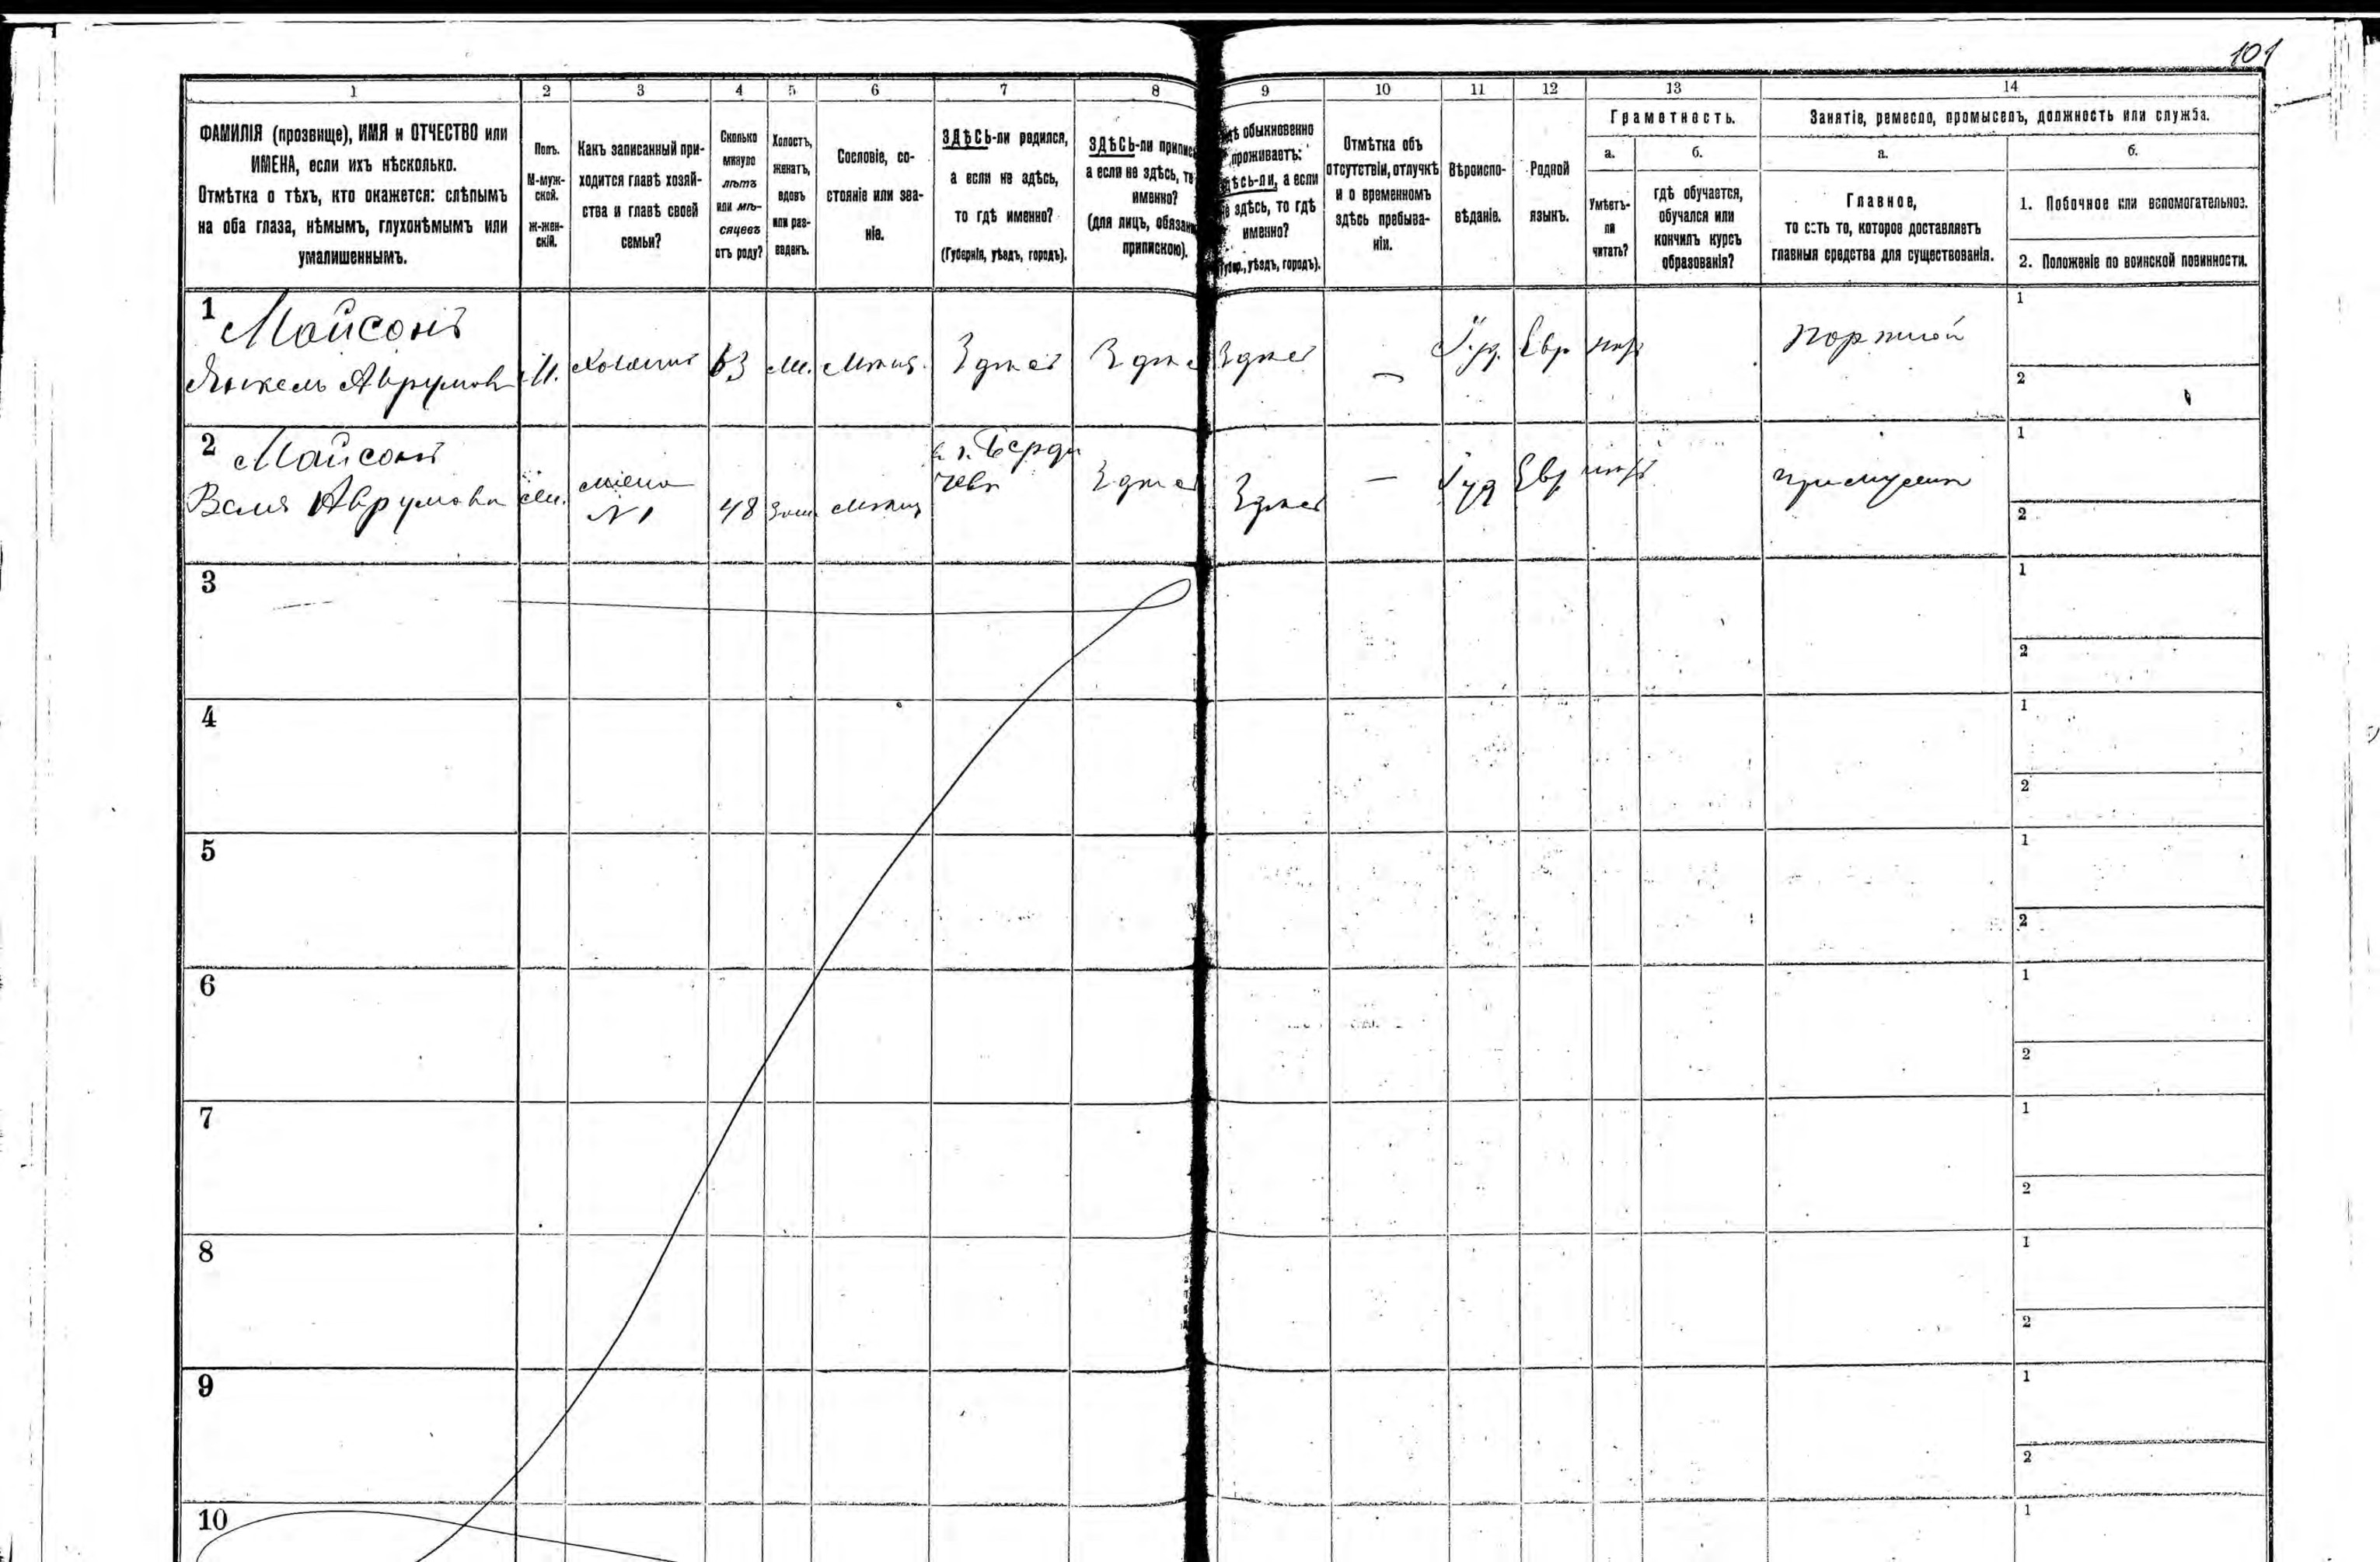 101
1 2 3 4 5 6 7 8 9 10 11 12 13 14
ФАМИЛІЯ (прозвище), ИМЯ и ОТЧЕСТВО или
ИМЕНА, если ихъ нѣсколько.
Отмѣтка о тѣхъ, кто окажется: слѣпымъ
на оба глаза, нѣмымъ, глухонѣмымъ или
умалишеннымъ.
Полъ.
М-муж-
ской.
Ж-жен-
скій.
Какъ записанный при-
ходится главѣ хозяй-
ства и главѣ своей
семьи?
Сколько
минуло
лѣтъ
или мѣ-
сяцевъ
отъ роду?
Холостъ,
женатъ,
вдовъ
или раз-
веденъ.
Сословіе, со-
стояніе или зва-
ніе.
ЗДѢСЬ-ли родился,
а если не здѣсь,
то гдѣ именно?
(Губернія, уѣздъ, городъ).
ЗДѢСЬ-ли припис
а если не здѣсь, т
именно?
(для лицъ, обязан
припискою).
обыкновенно
проживаетъ:
ѣсь-ли, а если
здѣсь, то гдѣ
именно?
уѣздъ, городъ).
Отмѣтка объ
отсутствіи, отлучкѣ
и о временномъ
здѣсь пребыва-
ніи.
Вѣроиспо-
вѣданіе.
Родной
языкъ.
Грамотность.
а.
Умѣетъ-
ли
читать?
б.
гдѣ обучается,
обучался или
кончилъ курсъ
образованія?
Занятіе, ремесло, промыселъ, должность или служба.
а.
Главное,
то есть то, которое доставляетъ
главныя средства для существованія.
б.
1. Побочное или вспомогательное.
2. Положеніе по воинской повинности.
1
Майсонъ
Янкель Аврумов М. 63 Здѣсь Здѣс Здѣсь — Іуд. Евр Портной
1
2
2
Майсонъ
Аврумова жена
N 1 48 г. Берди
чев Здѣсь Здѣсь — Іуд Евр
1
2
3
1
2
4
1
2
5
1
2
6
1
2
7
1
2
8
1
2
9
1
2
10
1